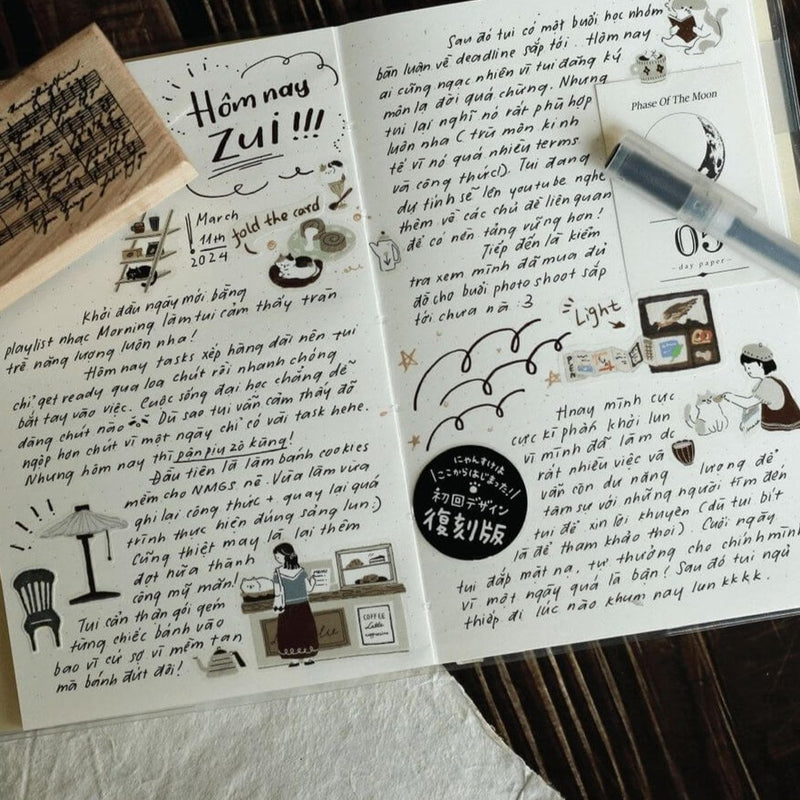 Hôm nay
zui!!!
March
11th
2024
fold the card
Khởi đầu ngày mới bằng
playlist nhạc Morning làm tui cảm thấy tràn
trề năng lượng luôn nha!
Hôm nay tasks xếp hàng dài nên tui
chỉ get ready qua loa chút rồi nhanh chóng
bắt tay vào việc. Cuộc sống đại học chẳng dễ
dàng chút nào Dù sao tui vẫn cảm thấy đỡ
ngộp hơn chút vì một ngày chỉ có vài task hehe.
Nhưng hôm nay thì pàn piu zô kùng!
Đầu tiên là làm bánh cookies
mềm cho NMGs nè. Vừa làm vừa
ghi lại công thức + quay lại quá
trình thực hiện đúng sáng lun:)
Cũng thiệt may là lại thêm
đợt nữa thành
công mỹ mãn!
Tui cẩn thận gói ghém
từng chiếc bánh vào
bao vì cứ sợ vì mềm tan
mà bánh đứt đôi!
MENU
COFFEE
Latte
cappuccino
Sau đó tui có một buổi học nhóm
bàn luận về deadline sắp tới. Hôm nay
ai cũng ngạc nhiên vì tui đăng ký
môn lạ đời quá chừng. Nhưng
tui lại nghĩ nó rất phù hợp
luôn nha (trừ môn kinh
tế vì nó quá nhiều terms
và công thức!). Tui đang
dự tính sẽ lên youtube nghe
thêm về các chủ đề liên quan
để có nền tảng vững hơn!
Tiếp đến là kiểm
tra xem mình đã mua đủ
đồ cho buổi photo shoot sắp
tới chưa nà :3
Phase Of The Moon
05
day paper
Light
Hnay mình cực
cực kì phấn khởi lun
vì mình đã làm dc
rất nhiều việc và
vẫn còn dư năng lượng để
tâm sự với những người tìm đến
tui để xin lời khuyên (dù tui bit
là để tham khảo thoi). Cuối ngày
tui đắp mặt nạ, tự thưởng cho chính mình
vì một ngày quá là bận! Sau đó tui ngủ
thiếp đi lúc nào khum nay lun kkkk.
にゃんすけは
ここからはじまった!
初回デザイン
復刻版